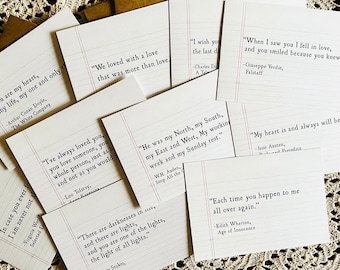 "We loved with a love
that was more than love."
"I wish you
the last d
-Charles D
A Tale
"When I saw you I fell in love,
and you smiled because you knew
-Giuseppe Verdi,
Falstaff
u are my heart,
my life, my one and only
-Arthur Conan Doyle,
The White Company
"I've always loved you
you love someone, you
whole person, just
and not as you would
-Leo Tolstoy,
"He was my North, my South,
my East and West, My working
week and my Sunday rest."
-W.H. Auden,
Stop All the
"My heart is and always will be
-Jane Austen,
"In case you ever
I am never not
-Virginia Woolf,
"There are darknesses in life
and there are lights,
and you are one of the
lights, the light of all lights.
-Bram Stoker,
"Each time you happen to me
all over again."
-Edith Wharton,
Age of Innocence